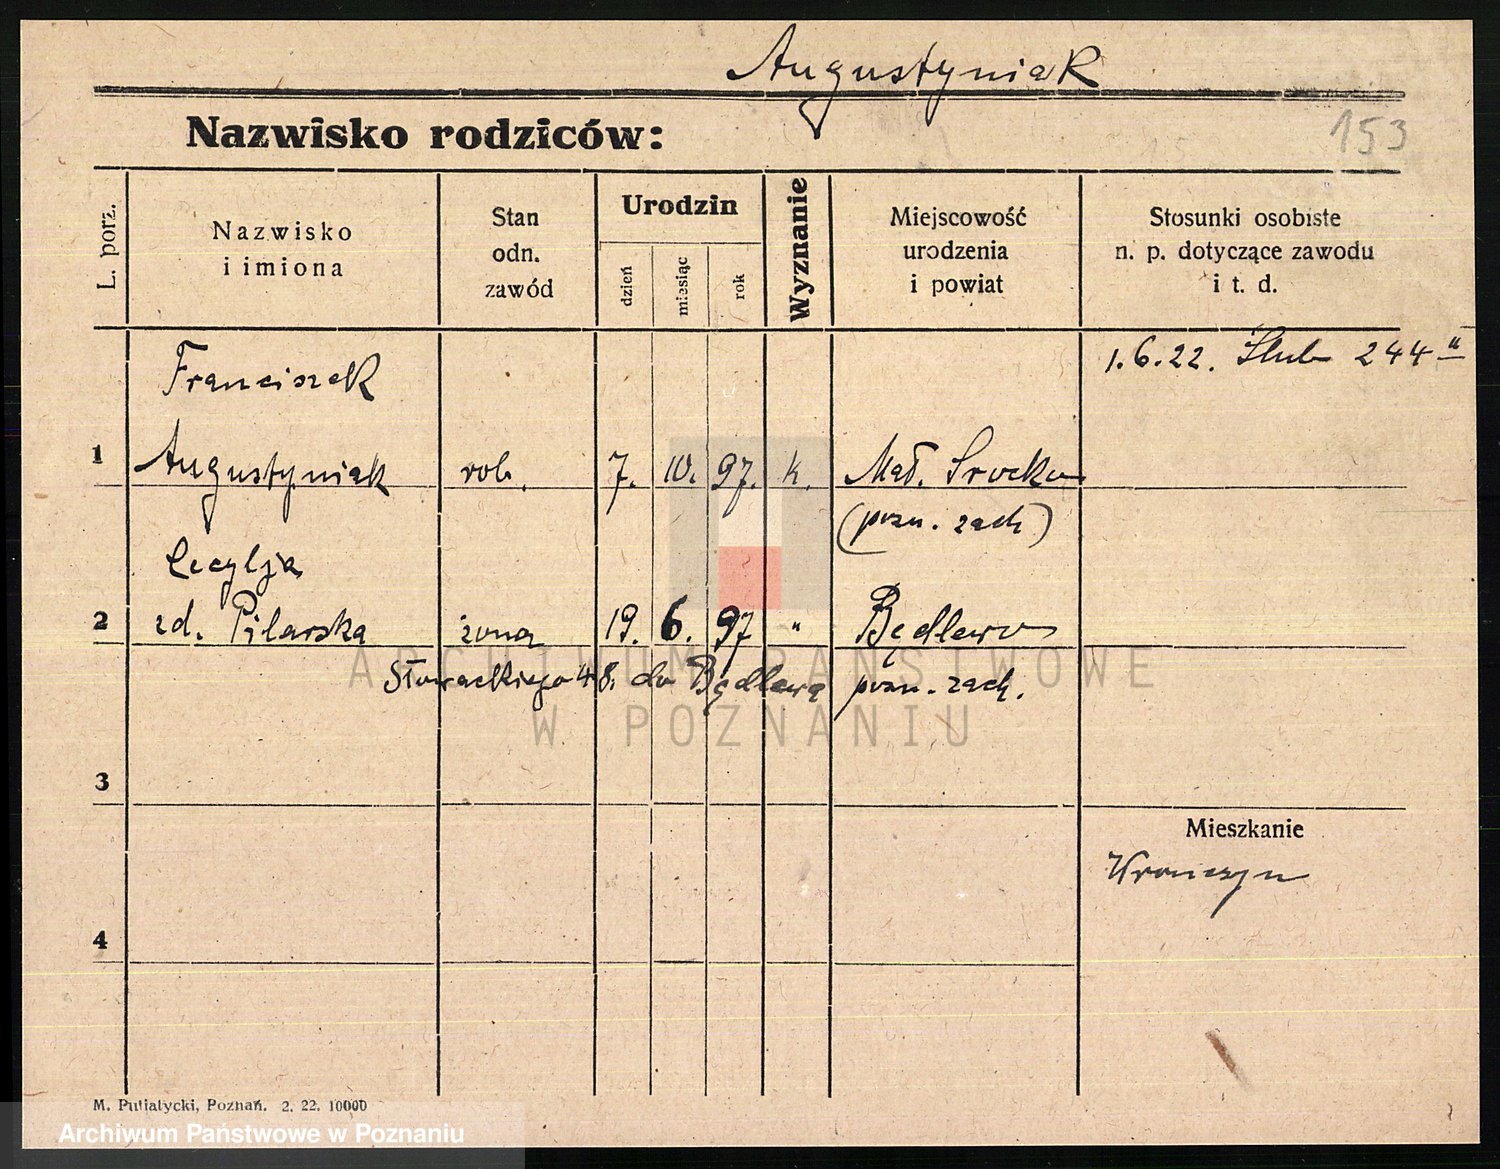 Augustyniak
153
Nazwisko rodziców:
L. porz.
Nazwisko
i imiona
Stan
odn.
zawód
Urodzin
dzień
miesiąc
rok
Wyznanie
Miejscowość
urodzenia
i powiat
Stosunki osobiste
n. p. dotyczące zawodu
i t. d.
Franciszek
1.6.22. Ślub 244
1 Augustyniak rob. 7. 10. 97. k. Mał. Srocko
(pozn. zach)
Cecylja
2 zd. Pilarska żona 19. 6. 97 " Będlewo
Słowackiego 48. do Będlewa pozn. zach.
3
Mieszkanie
Wronczyn
4
M. Putiatycki, Poznań. 2. 22. 10000
ARCHIWUM PAŃSTWOWE
W POZNANIU
Archiwum Państwowe w Poznaniu